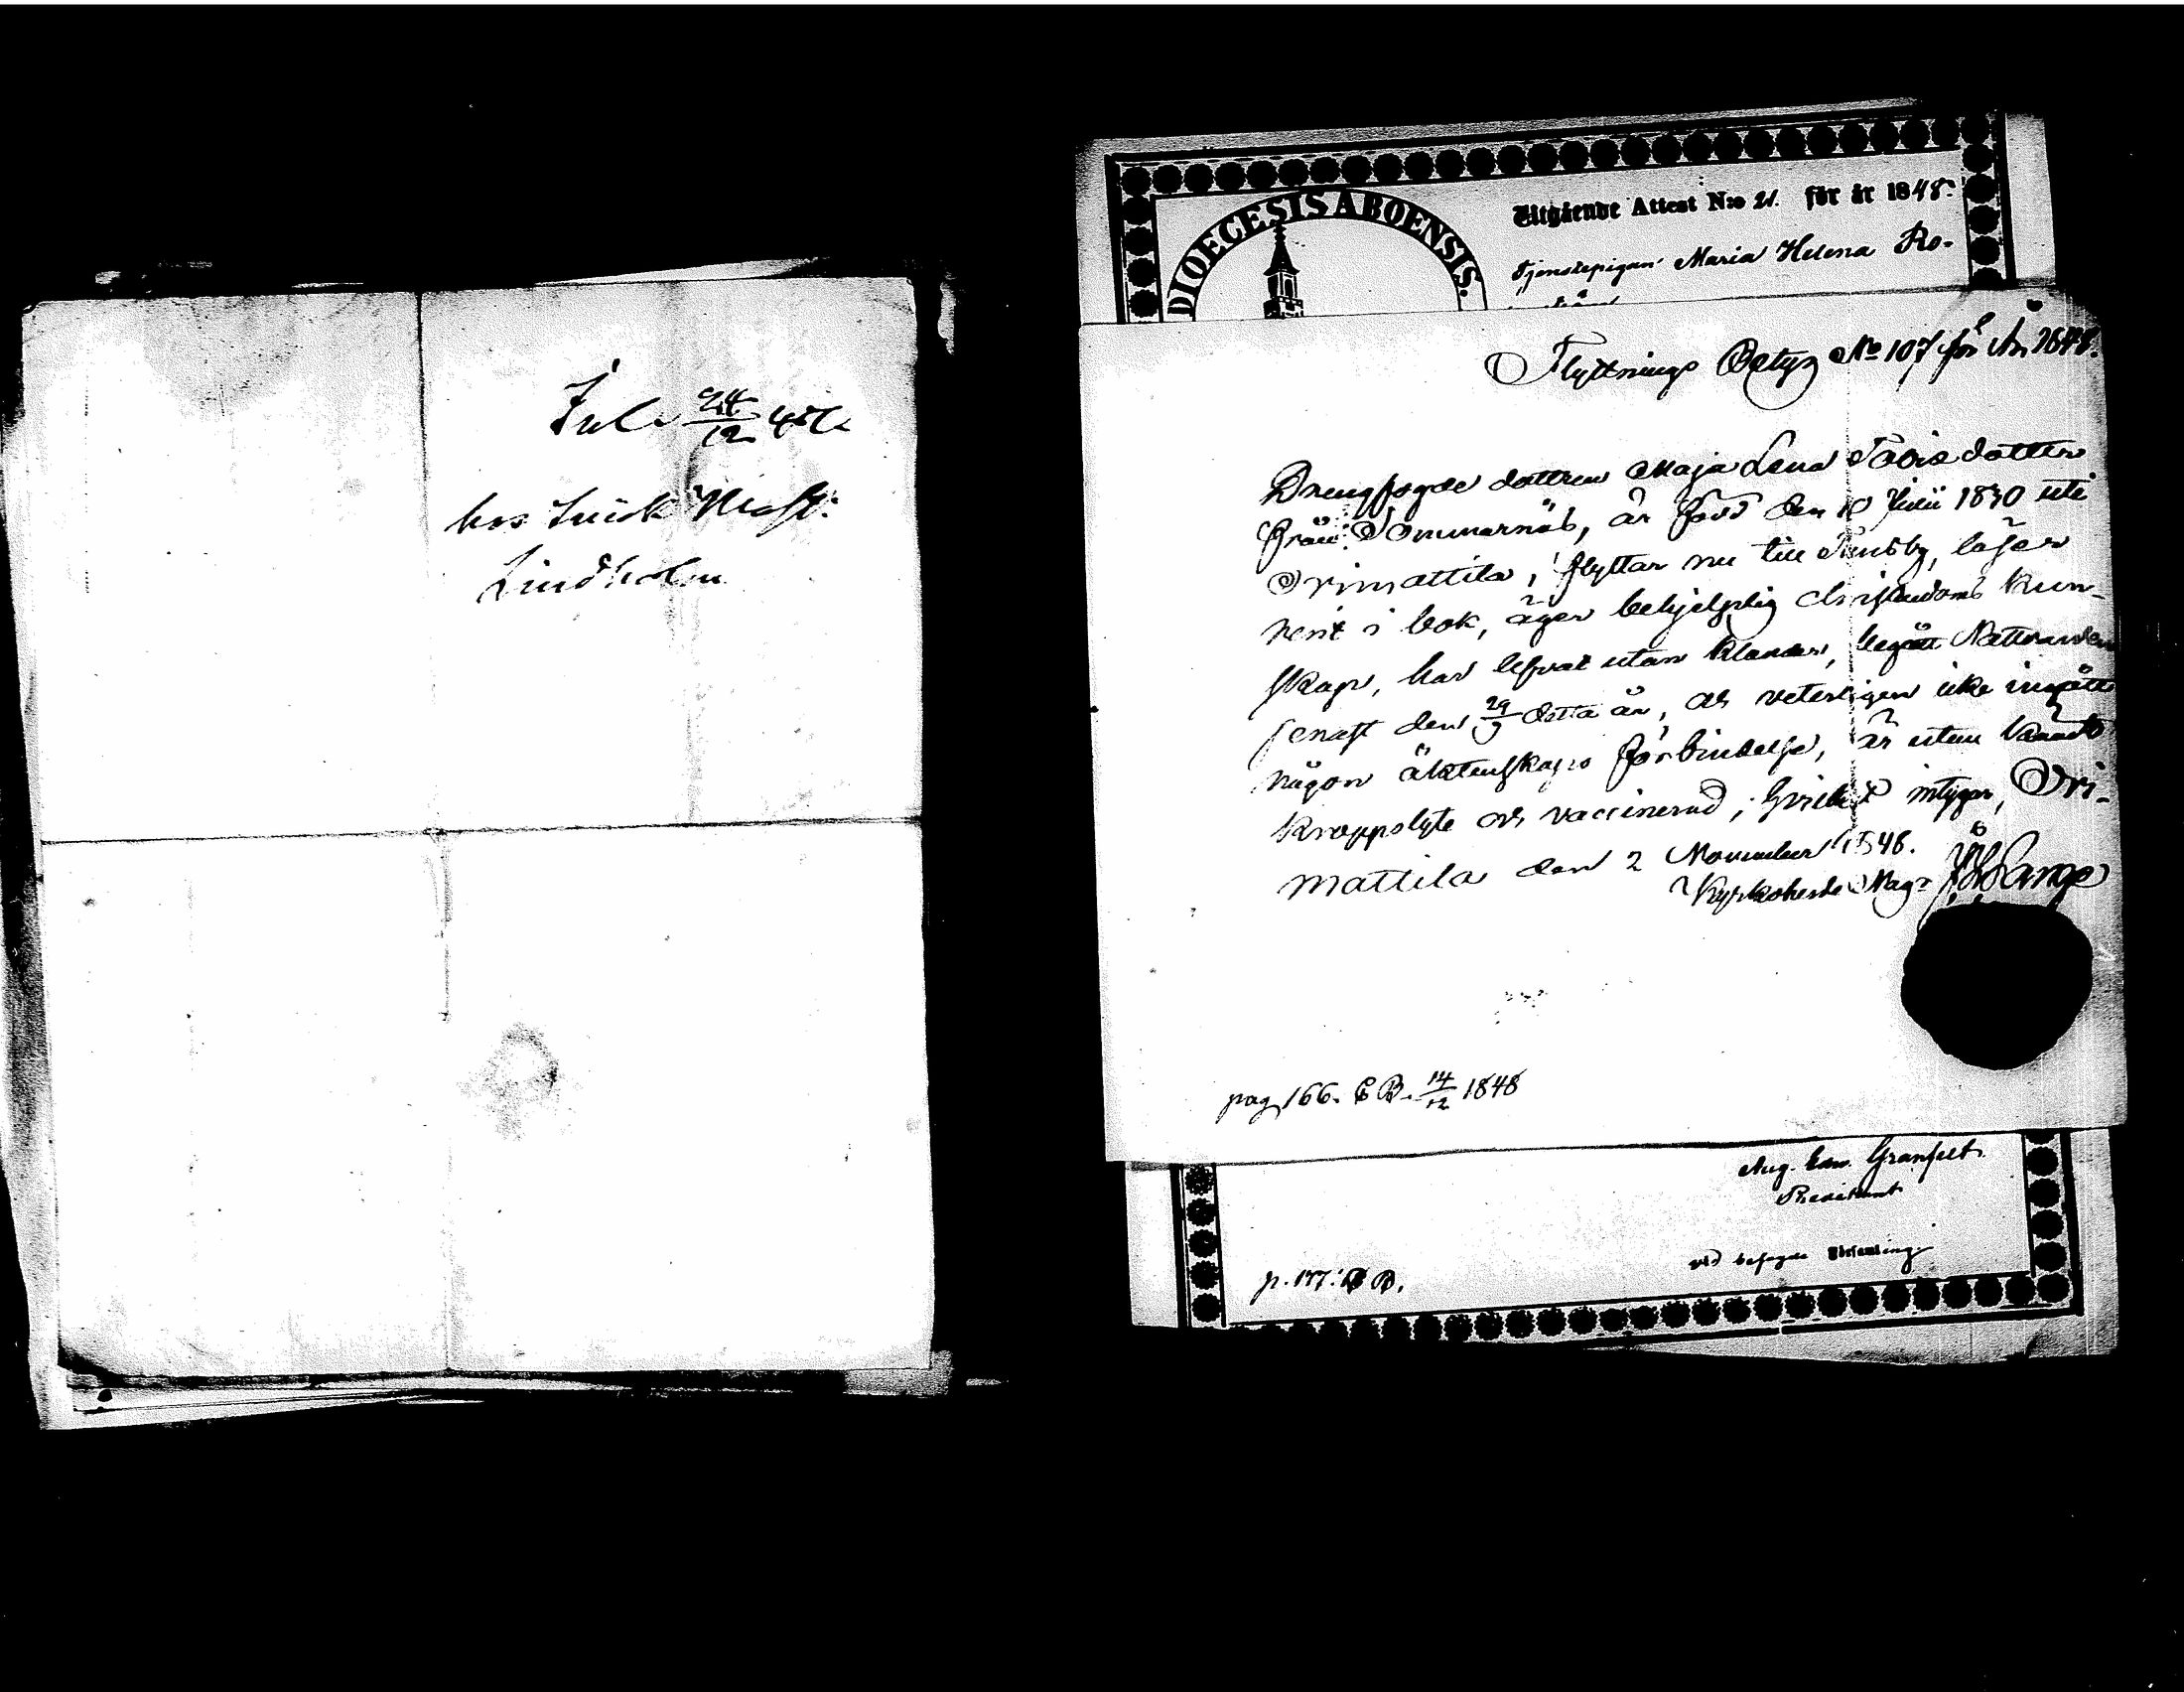 Inl. 24/12 48.
hos Snick Mäst:
Lindholm
DIOECESIS ABOENSIS.
Utgående Attest N:o 21. för år 1848.
Tjenstepigan Maria Helena Ro-
Flyttnings Betyg No 107 för År 1848.
Drengfogde dottren Maja Lena Tobis dotter
från Sommarnäs, är född den 10 Julii 1830 uti
Orimattila, flyttar nu till läser
rent i bok, äger behjelplig christendoms kun-
skap, har lefvat utan klander, begått Nattvarden
senast den 29/ detta år, och veterligen icke ingått
någon äktenskaps förbindelse, är utan kändt
kroppslyte och vaccinerad; hvilket intygar, Ori-
mattila den 2 November 1848.
Kyrkoherde Mag: Lange
pag 166. C B. 14/12 1848
Aug. Edv. Granfelt.
Predikant
vid befagde Församling.
p. 177. C B.